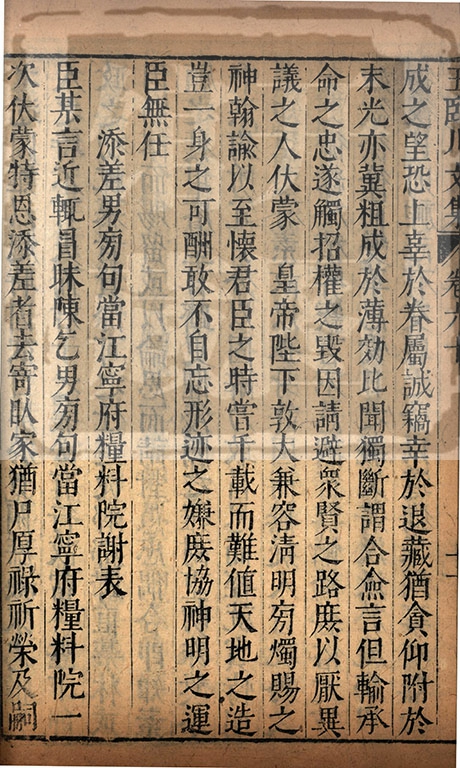 王臨川文集 卷六十
成之望恐上辜於眷屬誠竊幸於退藏猶貪仰附於
末光亦冀粗成於薄効比聞獨斷謂合僉言但輸承
命之忠遂觸招權之毀因請避衆賢之路庶以厭異
議之人伏蒙 皇帝陛下敦大兼容清明旁燭賜之
神翰諭以至懷君臣之時嘗千載而難値天地之造
豈一身之可酬敢不自忘形迹之嫌庶協神明之運
臣無任
添差男旁句當江寧府糧料院謝表
臣某言近輒冒昧陳乞男旁句當江寧府糧料院一
次伏蒙特恩添差者去寄臥家猶尸厚祿祈榮及嗣